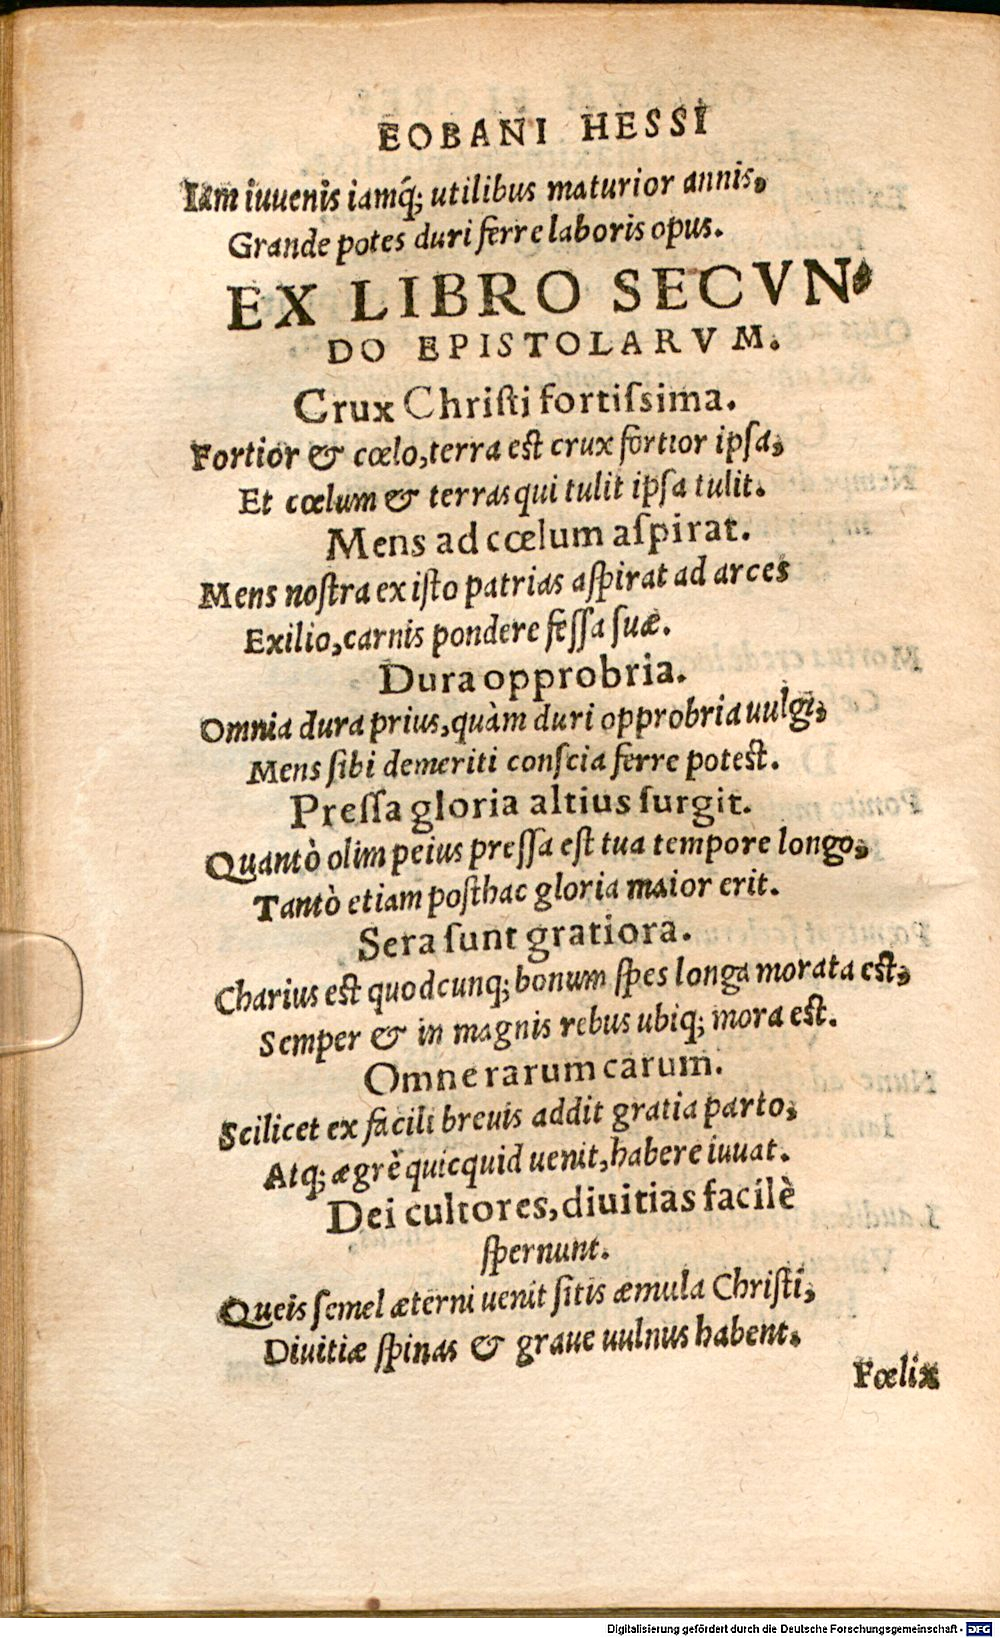 EOBANI HESSI
Iam iuuenis iamq́; utilibus maturior annis,
Grande potes duri ferre laboris opus.
EX LIBRO SECVN-
DO EPISTOLARVM.
Crux Chriſti fortiſsima.
Fortior & cœlo, terra eſt crux fortior ipſa,
Et cœlum & terras qui tulit ipſa tulit.
Mens ad cœlum aſpirat.
Mens noſtra ex iſto patrias aſpirat ad arces
Exilio, carnis pondere feſſa ſuæ.
Dura opprobria.
Omnia dura prius, quàm duri opprobria uulgi,
Mens ſibi demeriti conſcia ferre poteſt.
Preſſa gloria altius ſurgit.
Quantò olim peius preſſa eſt tua tempore longo,
Tantò etiam poſthac gloria maior erit.
Sera ſunt gratiora.
Charius eſt quodcunq; bonum ſpes longa morata eſt,
Semper & in magnis rebus ubiq; mora eſt.
Omne rarum carum.
Scilicet ex facili breuis addit gratia parto,
Atq; ægrè quicquid uenit, habere iuuat.
Dei cultores, diuitias facilè
ſpernunt.
Queis ſemel æterni uenit ſitis æmula Chriſti,
Diuitiæ ſpinas & graue uulnus habent.
Fœlix
Digitalisierung gefördert durch die Deutsche Forschungsgemeinschaft - DFG